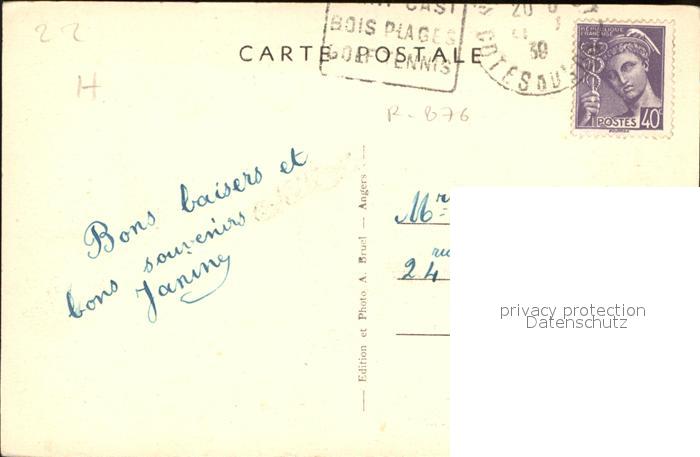 22
CAST
BOIS PLAGES
GOLF TENNIS
20
39
COTES DU
CARTE POSTALE
REPUBLIQUE
FRANCAISE
POSTES 40c
H
R-B76
Bons baisers et
bons souvenirs
Janine
Edition et Photo A. Bruel — Angers
Mr
24 ru
privacy protection
Datenschutz